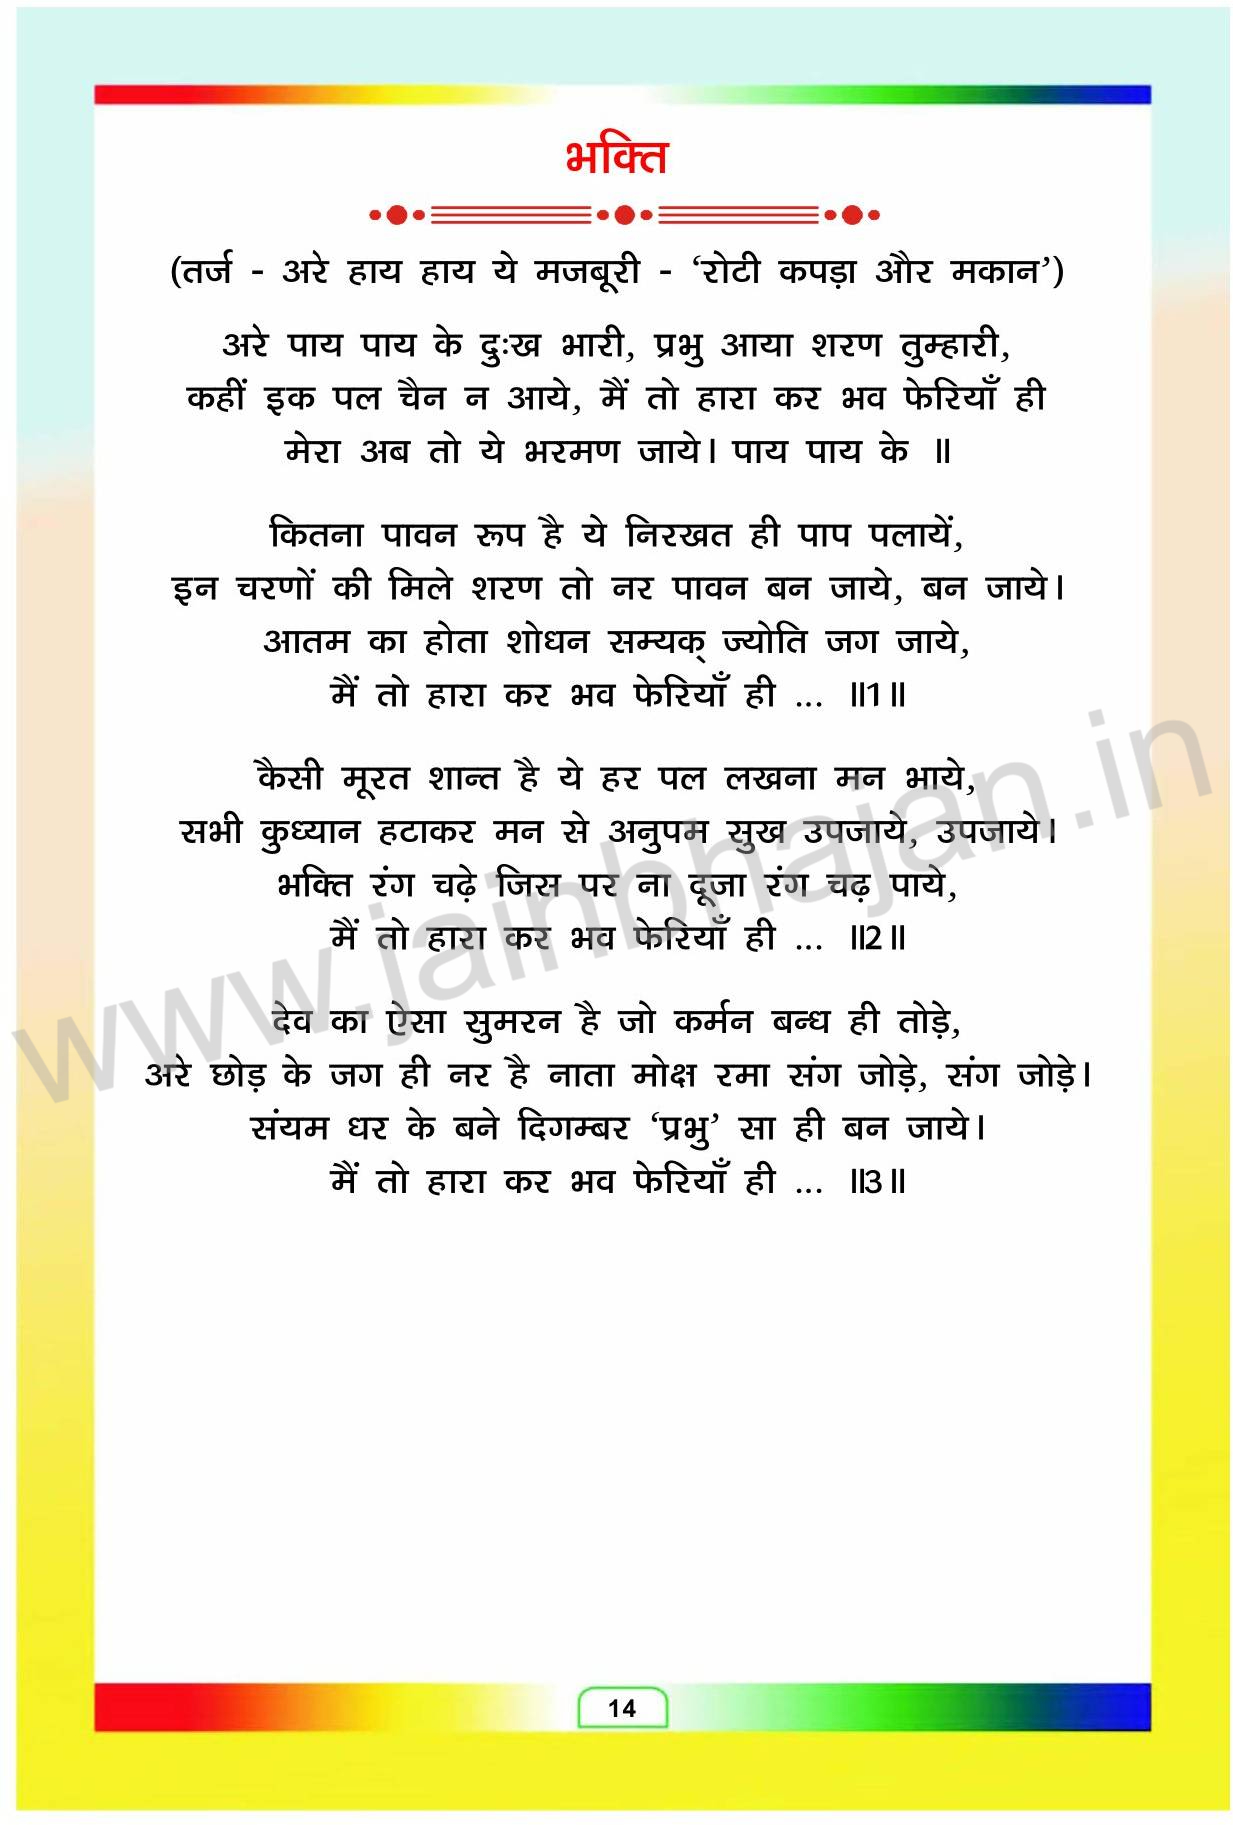 भक्ति
(तर्ज - अरे हाय हाय ये मजबूरी - ‘रोटी कपड़ा और मकान’)
अरे पाय पाय के दुःख भारी, प्रभु आया शरण तुम्हारी,
कहीं इक पल चैन न आये, मैं तो हारा कर भव फेरियाँ ही
मेरा अब तो ये भरमण जाये। पाय पाय के ॥
कितना पावन रूप है ये निरखत ही पाप पलायें,
इन चरणों की मिले शरण तो नर पावन बन जाये, बन जाये।
आतम का होता शोधन सम्यक् ज्योति जग जाये,
मैं तो हारा कर भव फेरियाँ ही ... ॥1॥
कैसी मूरत शान्त है ये हर पल लखना मन भाये,
सभी कुध्यान हटाकर मन से अनुपम सुख उपजाये, उपजाये।
भक्ति रंग चढ़े जिस पर ना दूजा रंग चढ़ पाये,
मैं तो हारा कर भव फेरियाँ ही ... ॥2॥
देव का ऐसा सुमरन है जो कर्मन बन्ध ही तोड़े,
अरे छोड़ के जग ही नर है नाता मोक्ष रमा संग जोड़े, संग जोड़े।
संयम धर के बने दिगम्बर ‘प्रभु’ सा ही बन जाये।
मैं तो हारा कर भव फेरियाँ ही ... ॥3॥
www.jainbhajan.in
14